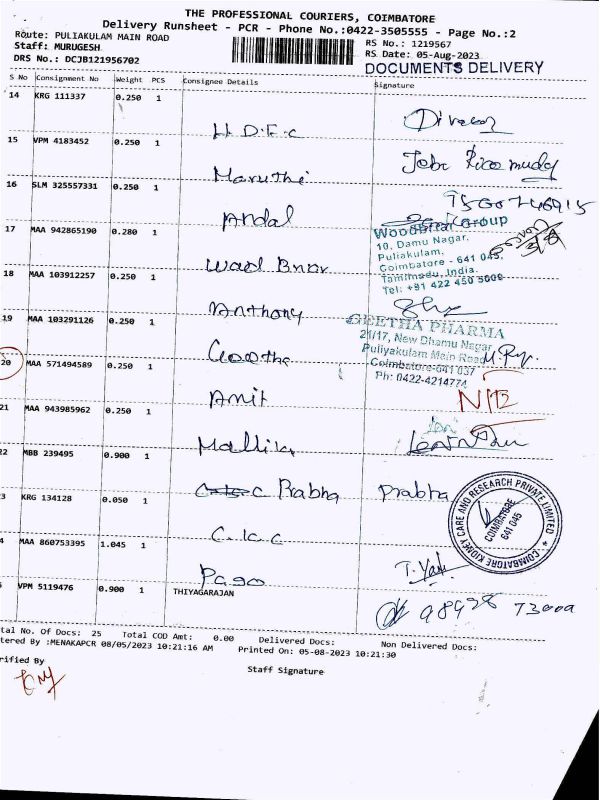 THE PROFESSIONAL COURIERS, COIMBATORE
Delivery Runsheet - PCR - Phone No.:0422-3505555 - Page No.:2
Route: PULIAKULAM MAIN ROAD
RS No.: 1219567
Staff: MURUGESH
RS Date: 05-Aug-2023
DRS No.: DCJB121956702
DOCUMENTS DELIVERY
S No Consignment No Weight PCS Consignee Details Signature
14 KRG 111337 0.250 1
H.D.F.C
15 VPM 4183452 0.250 1
Maruthi
16 SLM 325557331 0.250 1
Andal
17 MAA 942865190 0.280 1
Woodbriar Group
10, Damu Nagar,
Puliakulam,
Coimbatore - 641 045.
Tamilnadu, India.
Tel: +91 422 450 5006
18 MAA 103912257 0.250 1
Anthony
19 MAA 103291126 0.250 1
Geetha
GEETHA PHARMA
21/17, New Dhamu Nagar
Puliyakulam Main Road
Coimbatore-641 037
Ph: 0422-4214774
20 MAA 571494589 0.250 1
Amit
21 MAA 943985962 0.250 1
Mallika
22 MBB 239495 0.900 1
Prabha Prabha
3 KRG 134128 0.050 1
COIMBATORE KIDNEY CARE AND RESEARCH PRIVATE LIMITED
COIMBATORE
641 045
4 MAA 860753395 1.045 1
VPM 5119476 0.900 1 THIYAGARAJAN
tal No. Of Docs: 25 Total COD Amt: 0.00 Delivered Docs: Non Delivered Docs:
tered By :MENAKAPCR 08/05/2023 10:21:16 AM Printed On: 05-08-2023 10:21:30
rified By
Staff Signature